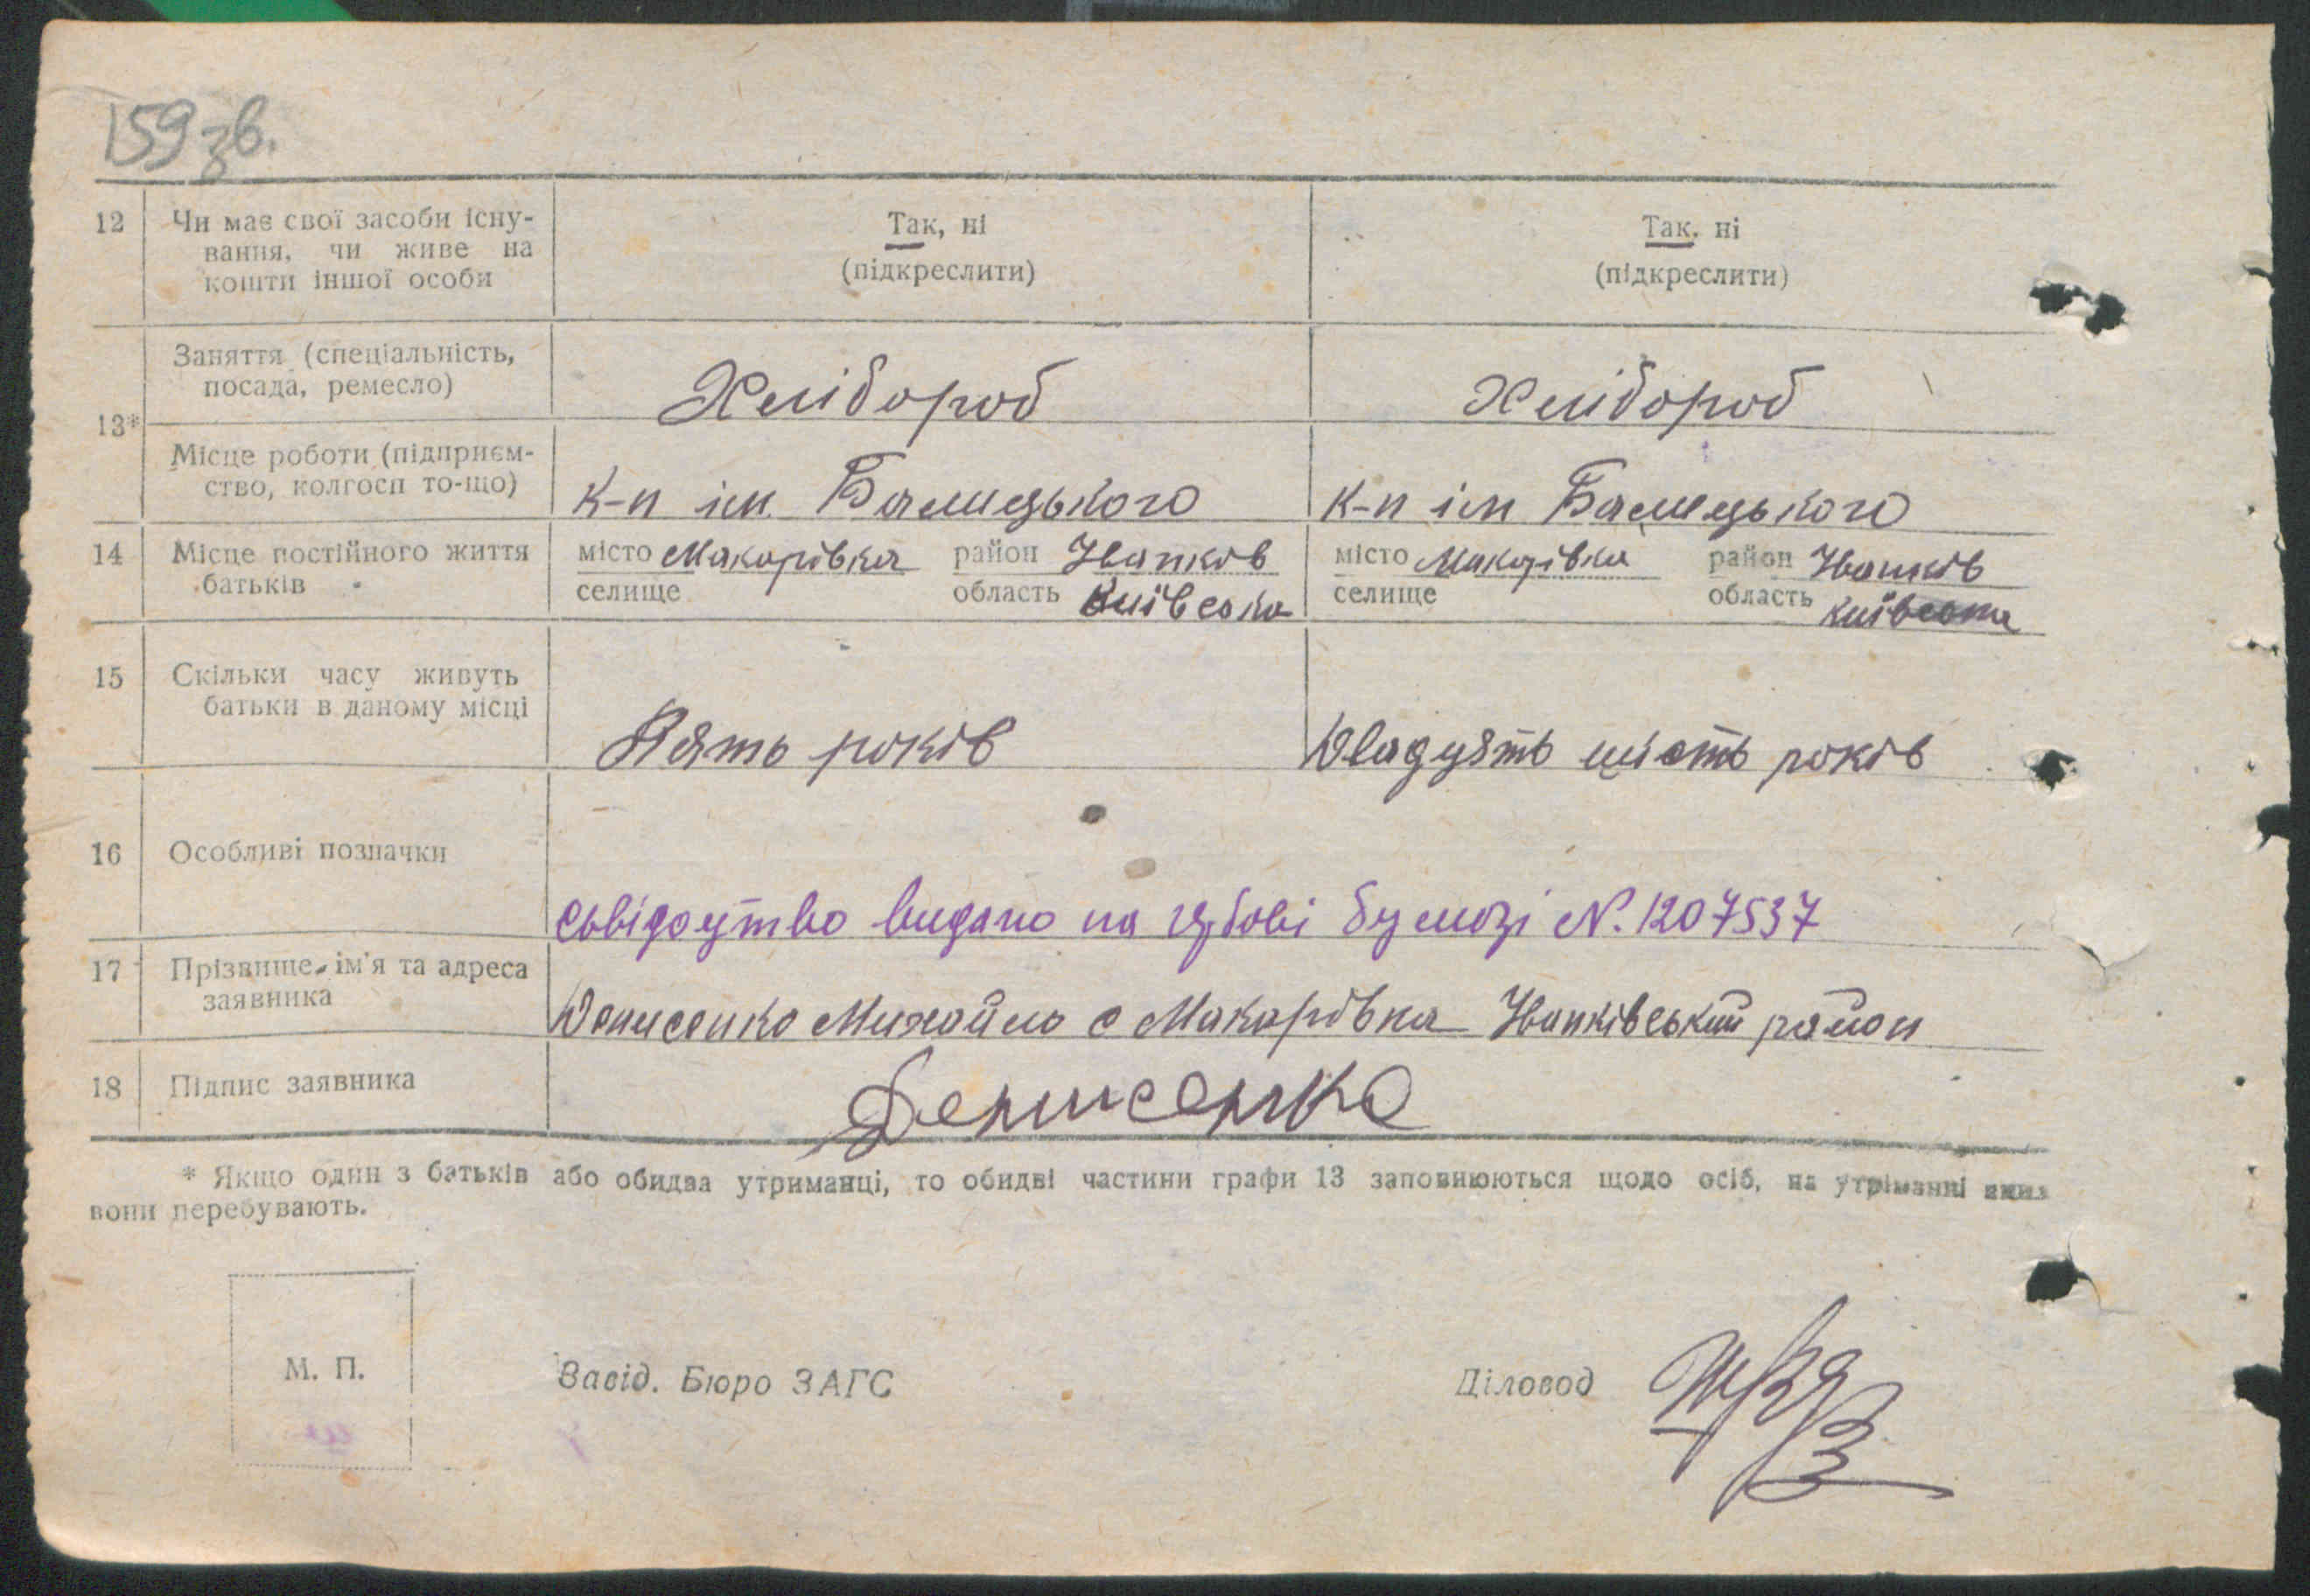 159 зв.
12 Чи має свої засоби існу- Так, ні Так, ні
вання, чи живе на (підкреслити) (підкреслити)
кошти іншої особи
13* Заняття (спеціальність, Хлібороб Хлібороб
посада, ремесло)
Місце роботи (підприєм- к-п ім. Балицького к-п ім Балицького
ство, колгосп то-що)
14 Місце постійного життя місто Макарівка район Іванків місто Макарівка район Іванків
батьків селище область Київська селище область Київська
15 Скільки часу живуть
батьки в даному місці Пять років Двадцять шість років
16 Особливі позначки
видано на гербові бумозі N. 1207537
17 Прізвище, ім'я та адреса
заявника Денисенко Михайло с Макарівка Іванківський район
18 Підпис заявника Денисенко
* Якщо один з батьків або обидва утриманці, то обидві частини графи 13 заповнюються щодо осіб, на утриманні яких
вони перебувають.
М. П. Завід. Бюро ЗАГС Діловод